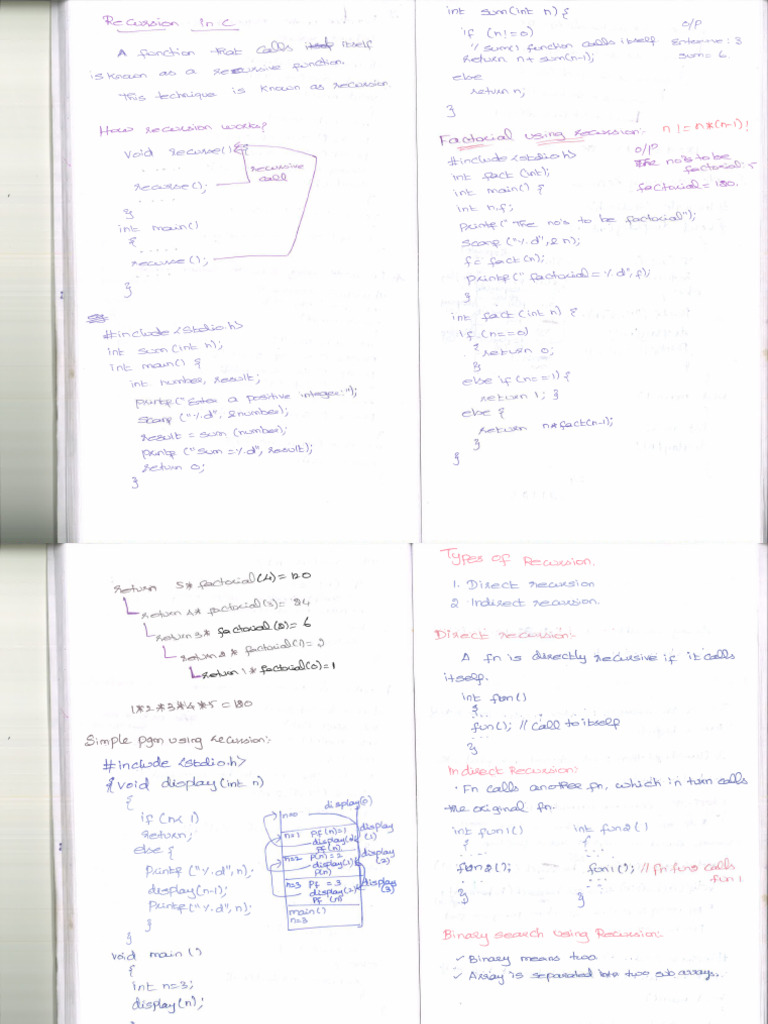 Recursion in C
A function that calls itself itself
is known as a recursive function.
This technique is known as recursion
How recursion works?
void recurse() {
. . . . .
recurse();
. . . .
}
recursive
call
int main()
{
. . . . .
recurse();
. . . .
}
#include <stdio.h>
int sum(int n);
int main() {
int number, result;
printf("Enter a positive integer:");
scanf ("%d", &number);
result = sum (number);
printf ("sum = %d", result);
return 0;
}
int sum(int n) {
if (n!=0)
// sum() function calls itself
return n+ sum(n-1);
else
return n;
}
O/P
sum= 6
Factorial using recursion:- n! = n*(n-1)!
#include <stdio.h>
int fact (int);
int main() {
int n,f;
printf(" The no's to be factorial");
scanf ("%d", &n);
f= fact(n);
printf(" factorial = %d", f);
}
int fact (int n) {
if (n==0)
{ return 0;
}
else if (n==1) {
return 1; }
else {
return n*fact(n-1);
}
}
O/P
The no's to be
factorial: 5
factorial = 120.
return 5* factorial(4)= 120
return 4* factorial(3)= 24
return 3* factorial(2)= 6
return 2* factorial(1)= 2
return 1* factorial(0)= 1
1*2*3*4*5 = 120
Simple pgm using recursion:-
#include <stdio.h>
{ void display(int n)
{
if (n< 1)
return;
else {
printf ("%d", n);
display(n-1);
printf("%d", n);
}
}
void main ()
{
int n=3;
display(n);
}
display(0)
n=0
n=1 pf (n)=1
pf(n)
display
(1)
n=2 p(n)=2
display(1)
p(n)
display
(2)
n=3 pf = 3
display(2)
pf (n)
display
(3)
main()
n=3
Types of Recursion.
1. Direct recursion
2 Indirect recursion.
Direct recursion:-
A fn is directly recursive if it calls
itself.
int fun()
{
fun(); // call to itself
. . . .
}
Indirect Recursion:
. Fn calls another fn, which in turn calls
the original fn.
int fun1()
{
. . .
fun2();
. . .
}
int fun2 ()
{
. . .
fun1(); // fn fun2 calls
fun 1
. . .
}
Binary search using Recursion:-
✓ Binary means two
✓ Array is separated into two sub arrays.